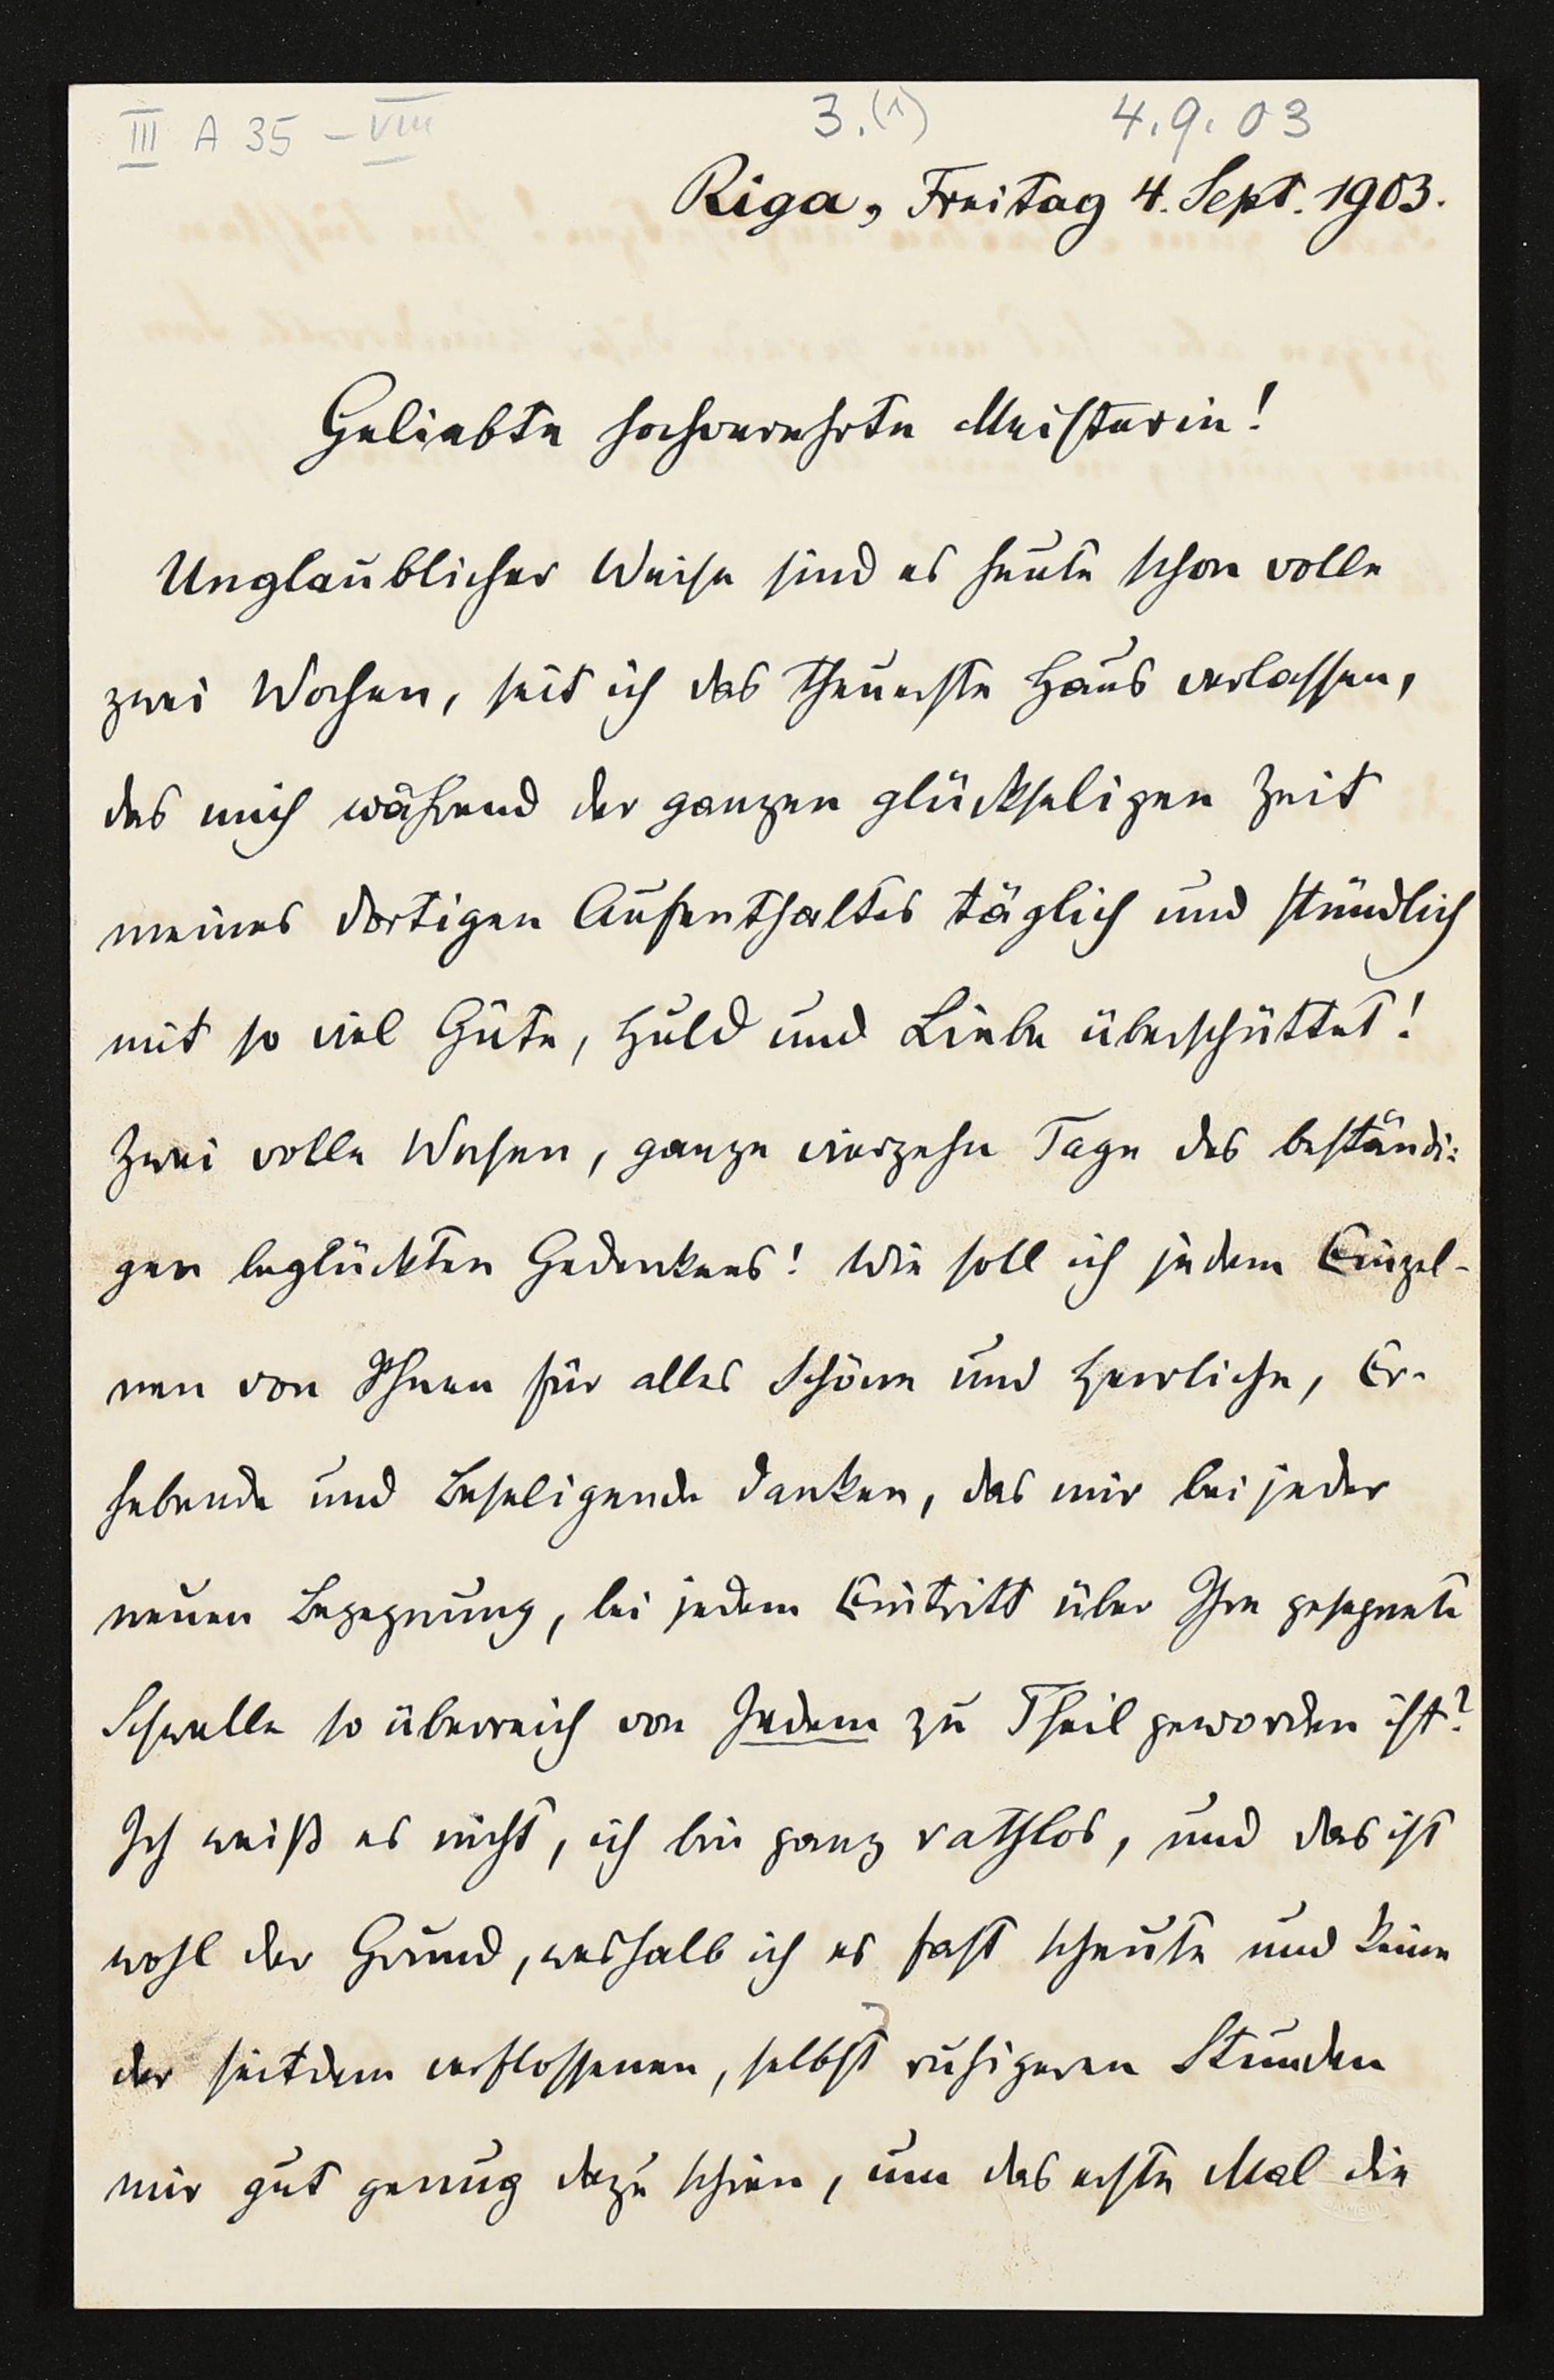 III A 35 - VIII 3.(1) 4.9.03
Riga, Freitag 4. Sept. 1903.
Geliebte hochverehrte Meisterin!
Unglaublicher Weise sind es heute schon volle
zwei Wochen, seit ich das theuerste Haus verlassen,
das mich während der ganzen glückseligen Zeit
meines dortigen Aufenthaltes täglich und stündlich
mit so viel Güte, Huld und Liebe überschüttet!
Zwei volle Wochen, ganze vierzehn Tage des bestän­di:
gen beglückten Gedenkens! Wie soll ich jedem Einzel-
nen von Ihnen für alles Schöne und Herrliche, Er-
hebende und Beseligende danken, das mir bei jeder
neuen Begegnung, bei jedem Eintritt über Ihre gesegnete
Schwelle so überreich von Jedem zu Theil geworden ist?
Ich weiß es nicht, ich bin ganz rathlos, und das ist
wohl der Grund, weshalb ich es fast scheute und keine
der seitdem verflossenen, selbst ruhigeren Stunden
mir gut genug dazu schien, um das erste Mal die